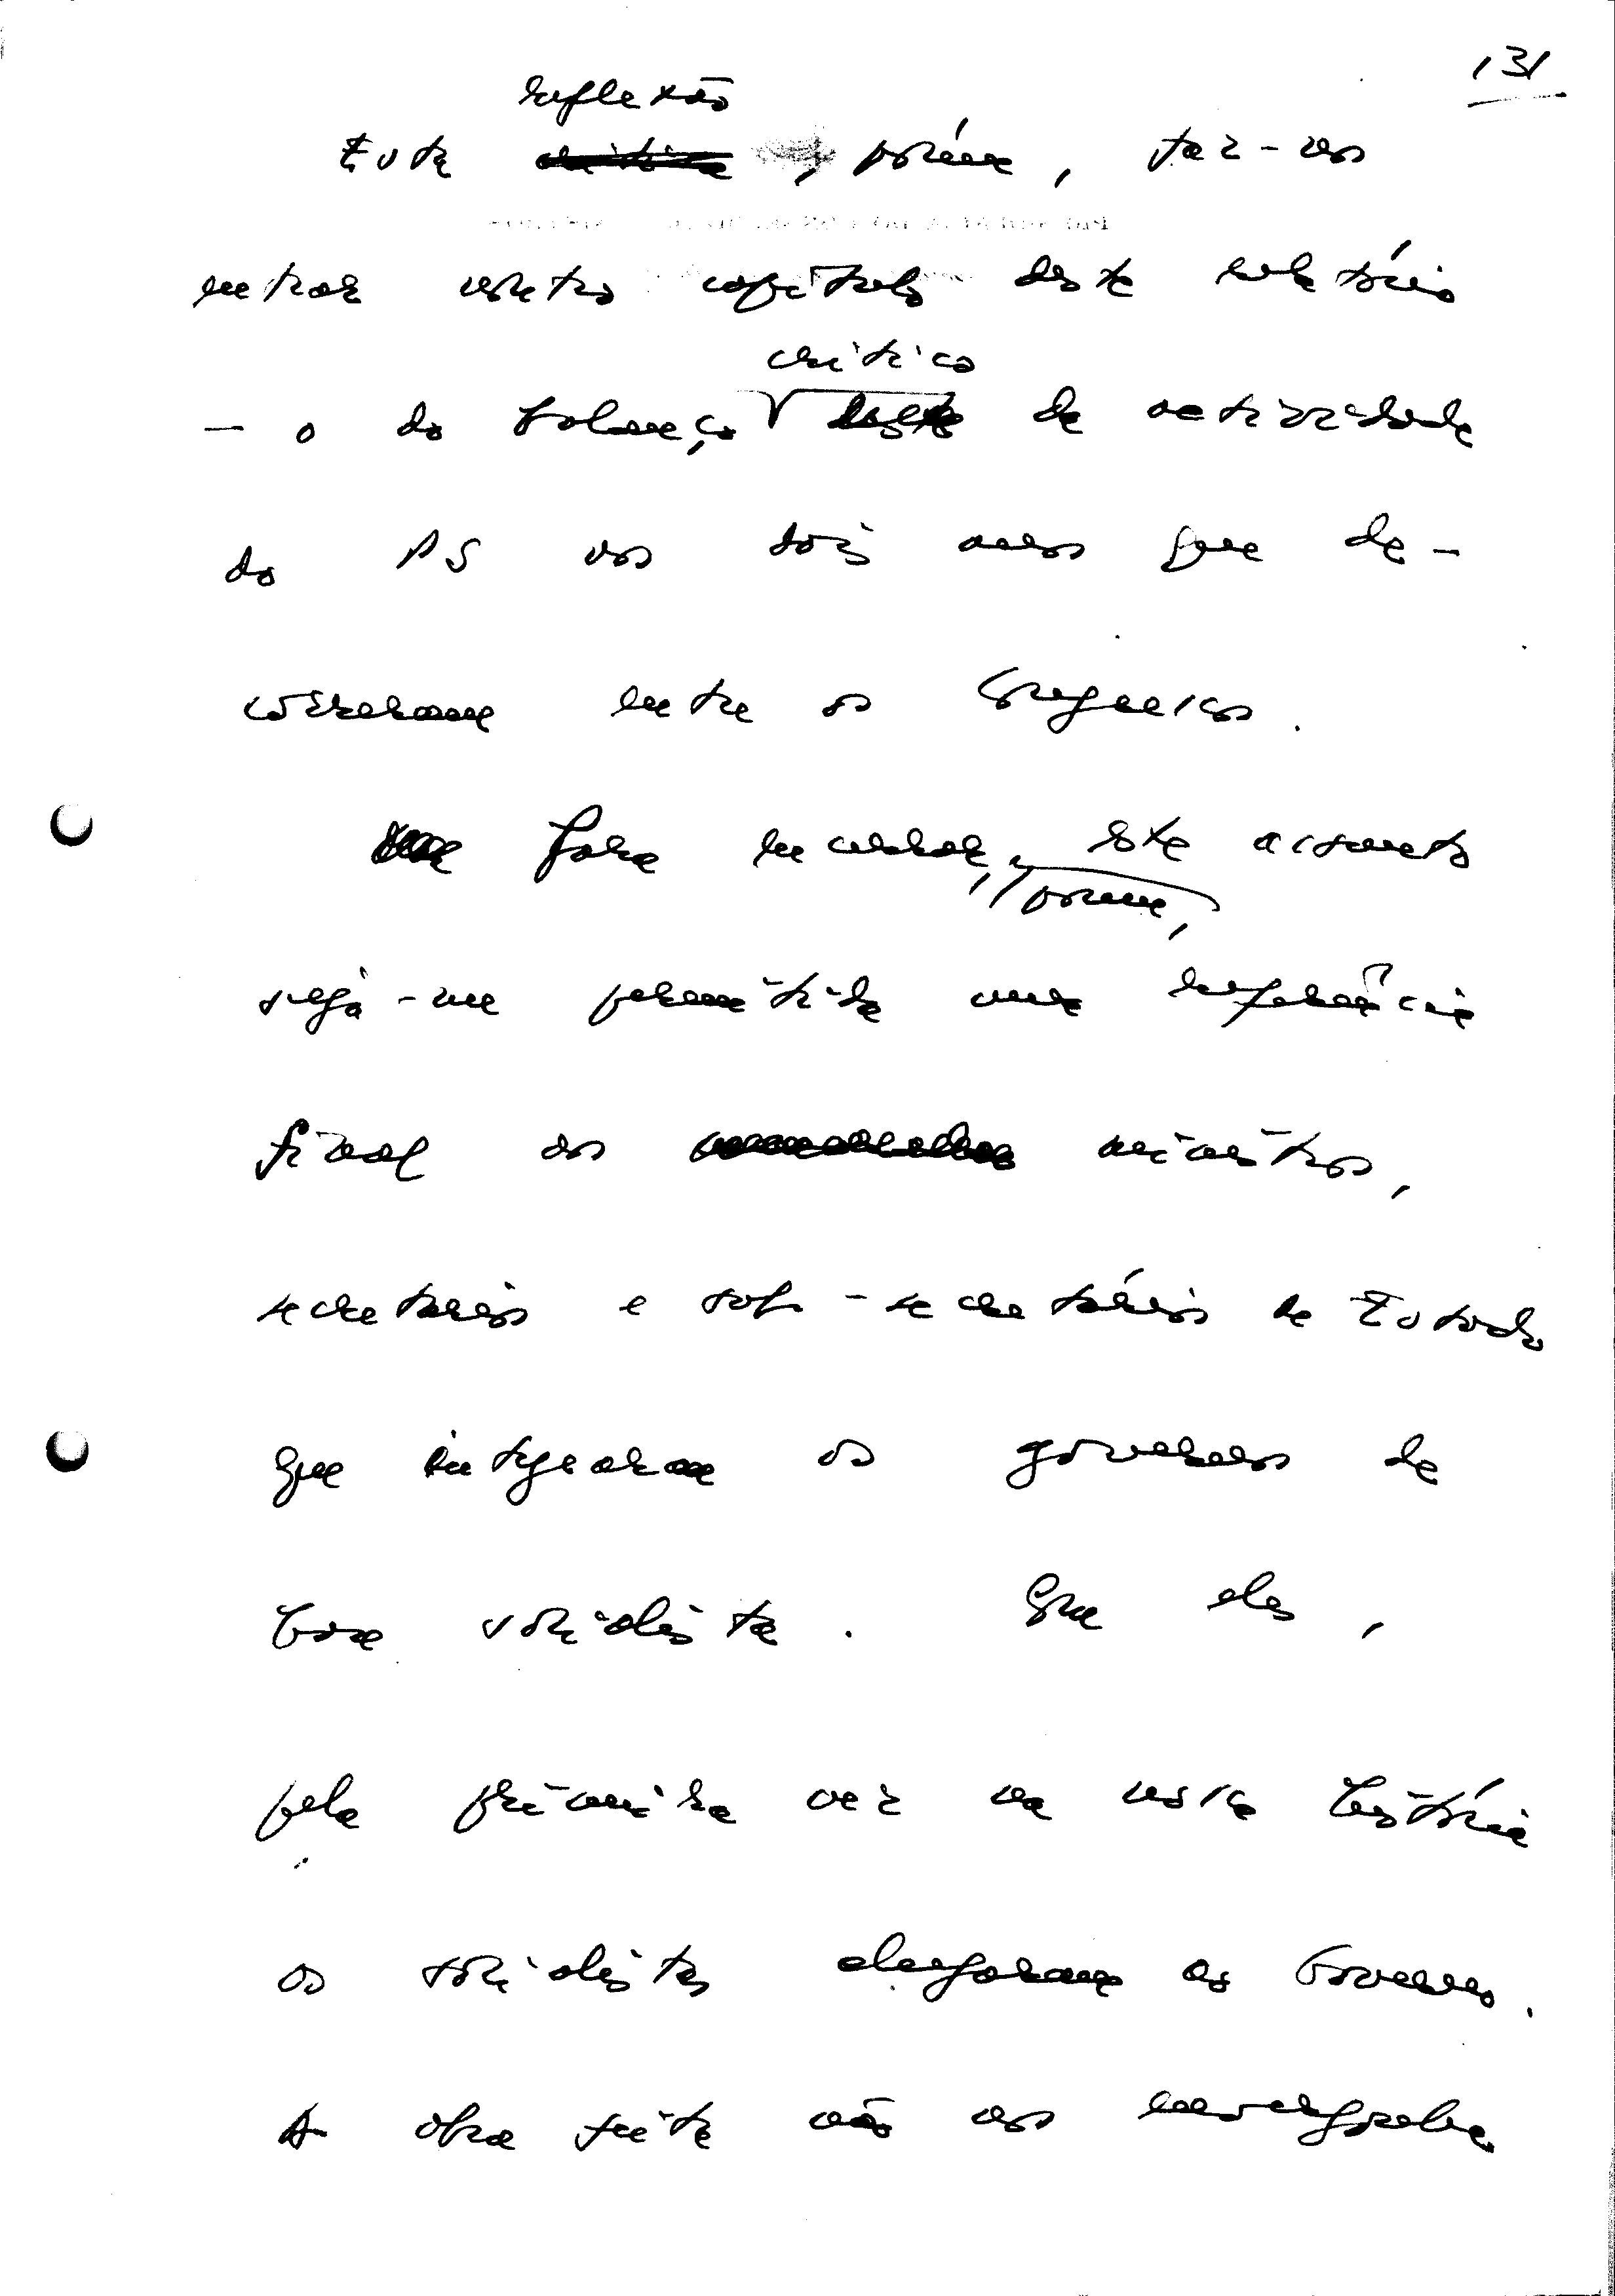 131
reflexão
Esta , porém, faz-nos
entrar noutro capítulo deste relatório
crítico
— o do balanço da actividade
do PS nos dois anos que de-
correram entre os Congressos.
Para encerrar, este assunto
porém,
seja-me permitida uma referência
final aos ministros,
secretários e sub-secretários de Estado
que integraram os governos de
base socialista. Que eles,
pela primeira vez na nossa história
os socialistas
A obra feita não nos envergonha.